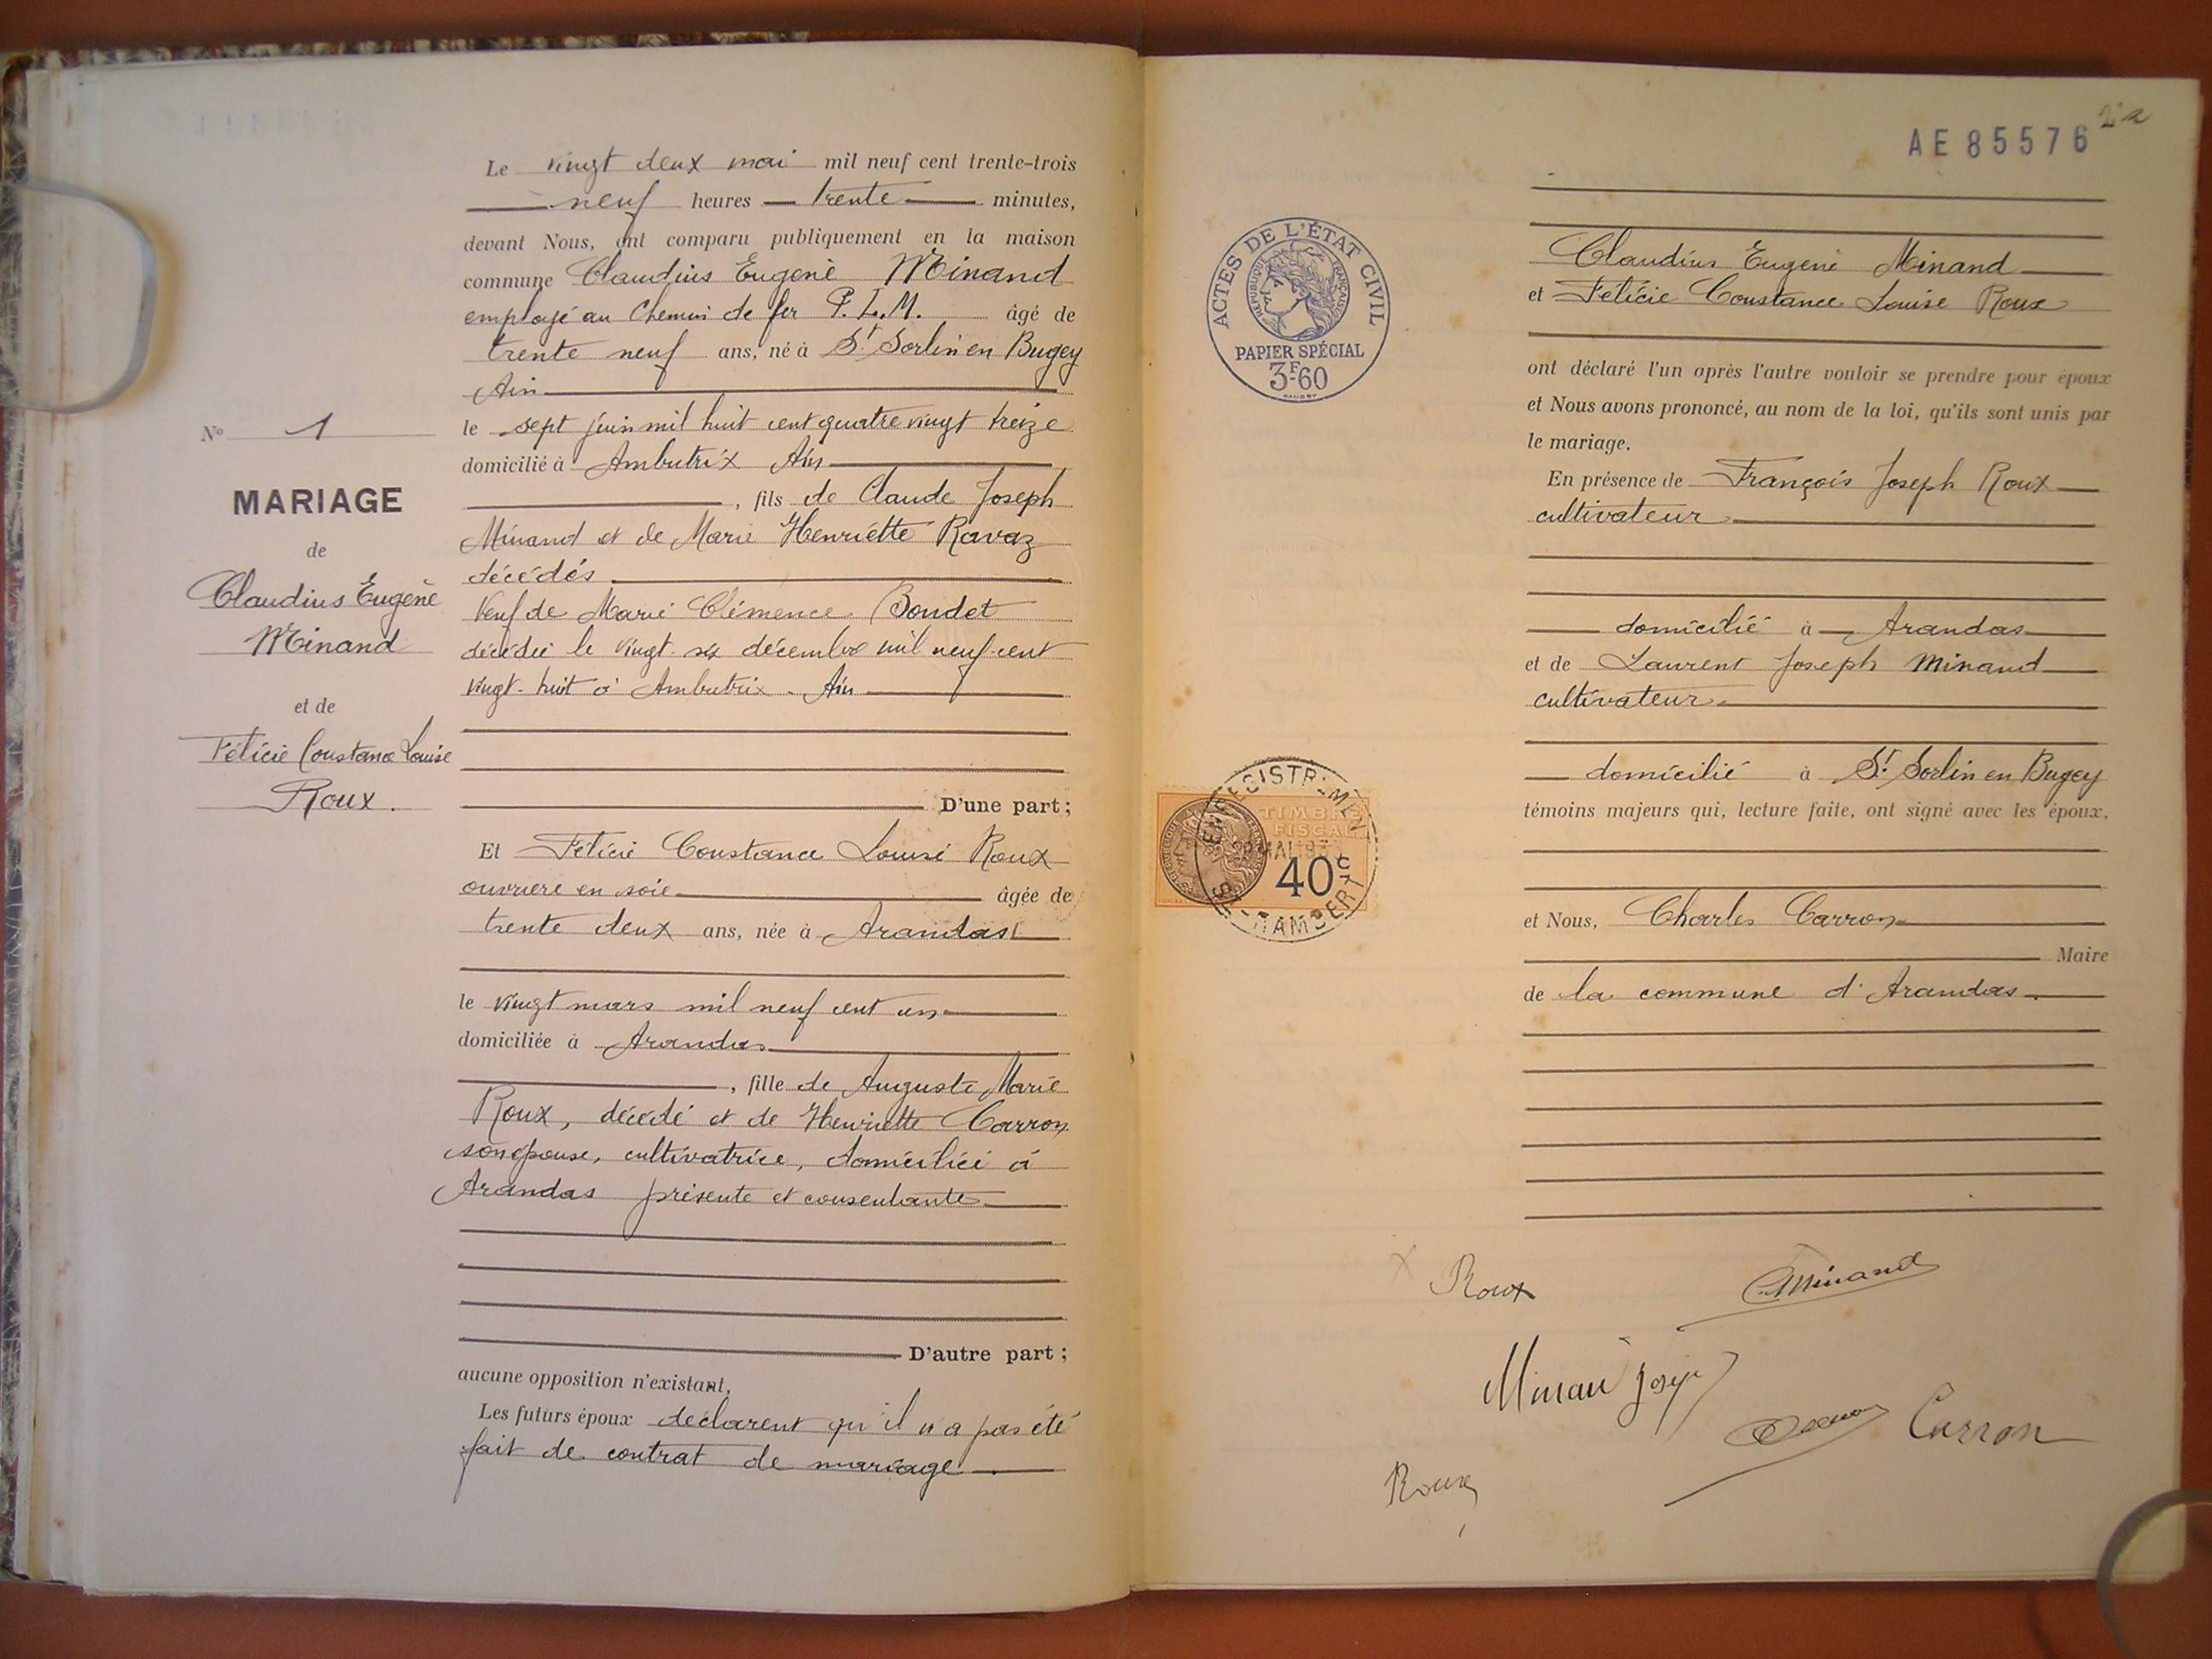 Le vingt deux mai mil neuf cent trente-trois
neuf heures trente minutes,
devant Nous, ont comparu publiquement en la maison
commune Claudius Eugène Minand
employé au Chemin de fer P.L.M. âgé de
trente neuf ans, né à St Sorlin en Bugey
Ain
le sept juin mil huit cent quatre vingt treize
domicilié à Ambutrix Ain
, fils de Claude Joseph
Minand et de Marie Henriette Ravaz
décédés
Veuf de Marie Clémence Boudet
décédée le vingt-six décembre mil neuf cent
vingt-huit à Ambutrix - Ain
D'une part ;
Et Félicie Constance Louise Roux
ouvrière en soie âgée de
trente deux ans, née à Arandas
le vingt mars mil neuf cent un
domiciliée à Arandas
, fille de Auguste Marie
Roux, décédé et de Henriette Carron
son épouse, cultivatrice, domiciliée à
Arandas présente et consentante
D'autre part ;
aucune opposition n'existant,
Les futurs époux déclarent qu'il n'a pas été
fait de contrat de mariage
N° 1
MARIAGE
de
Claudius Eugène
Minand
et de
Félicie Constance Louise
Roux.
AE 85576
ACTES DE L'ÉTAT CIVIL
RÉPUBLIQUE FRANÇAISE
PAPIER SPÉCIAL
3F60
Claudius Eugène Minand
et Félicie Constance Louise Roux
ont déclaré l'un après l'autre vouloir se prendre pour époux
et Nous avons prononcé, au nom de la loi, qu'ils sont unis par
le mariage.
En présence de François Joseph Roux
cultivateur
domicilié à Arandas
et de Laurent Joseph Minand
cultivateur
domicilié à St Sorlin en Bugey
témoins majeurs qui, lecture faite, ont signé avec les époux,
et Nous, Charles Carron
Maire
de la commune d'Arandas.
TIMBRE
FISCAL
40
Roux
Minand
Carron
Roux